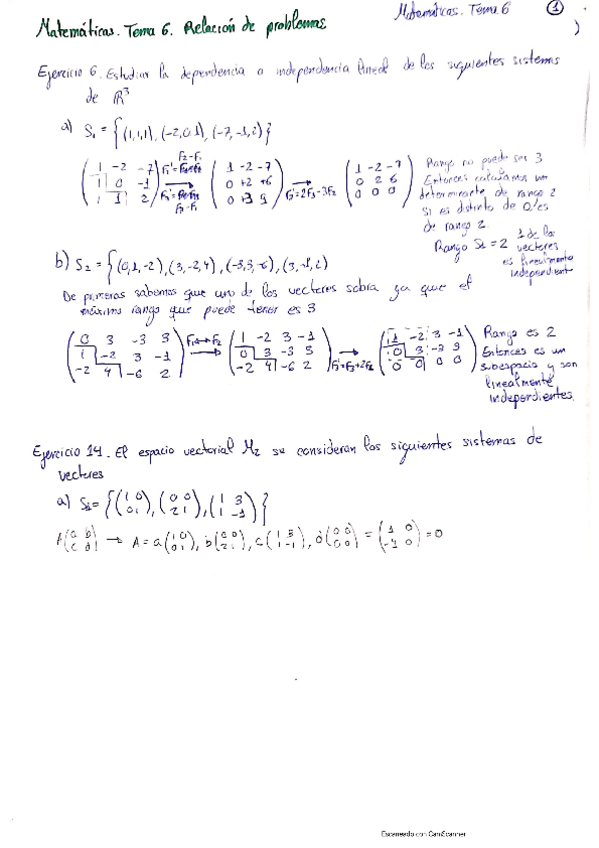 Matemáticas. Tema 6 ①
Matemáticas. Tema 6. Relación de problemas
Ejercicio 6. Estudiar la dependencia o independencia lineal de los siguientes sistemas
de R³
a) S₁ = {(1,1,1), (-2,0,1), (-7,-1,2)}
( 1 -2 -7
1 0 -1
1 1 2 ) F₂-F₁ F₃-F₁ → ( 1 -2 -7
0 +2 +6
0 +3 9 ) F₃'=2F₃-3F₂ → ( 1 -2 -7
0 2 6
0 0 0 )
Rango no puede ser 3
Entonces calculamos un
determinante de rango 2
Si es distinto de 0, es
de rango 2.
Rango = 2
1 de los
vectores
es linealmente
independient
b) S₂ = {(0,1,-2), (3,-2,4), (-3,3,-6), (3,-1,2)
De primeras sabemos que uno de los vectores sobra ya que el
máximo rango que puede tener es 3
( 0 3 -3 3
1 -2 3 -1
-2 4 -6 2 ) F₁↔F₂ → ( 1 -2 3 -1
0 3 -3 3
-2 4 -6 2 ) → ( 1 -2 3 -1
0 3 -3 3
0 0 0 0 )
Rango es 2
Entonces es un
subespacio y son
linealmente
independientes.
Ejercicio 14. El espacio vectorial M₂ se consideran los siguientes sistemas de
vectores
a) = {(1 0
0 1), (0 0
2 1), (1 3
1 -1)}
A(a b
c d) → A = a(1 0
0 1), b(0 0
2 1), c(1 3
1 -1), d(0 0
0 0) = = 0
Escaneado con CamScanner